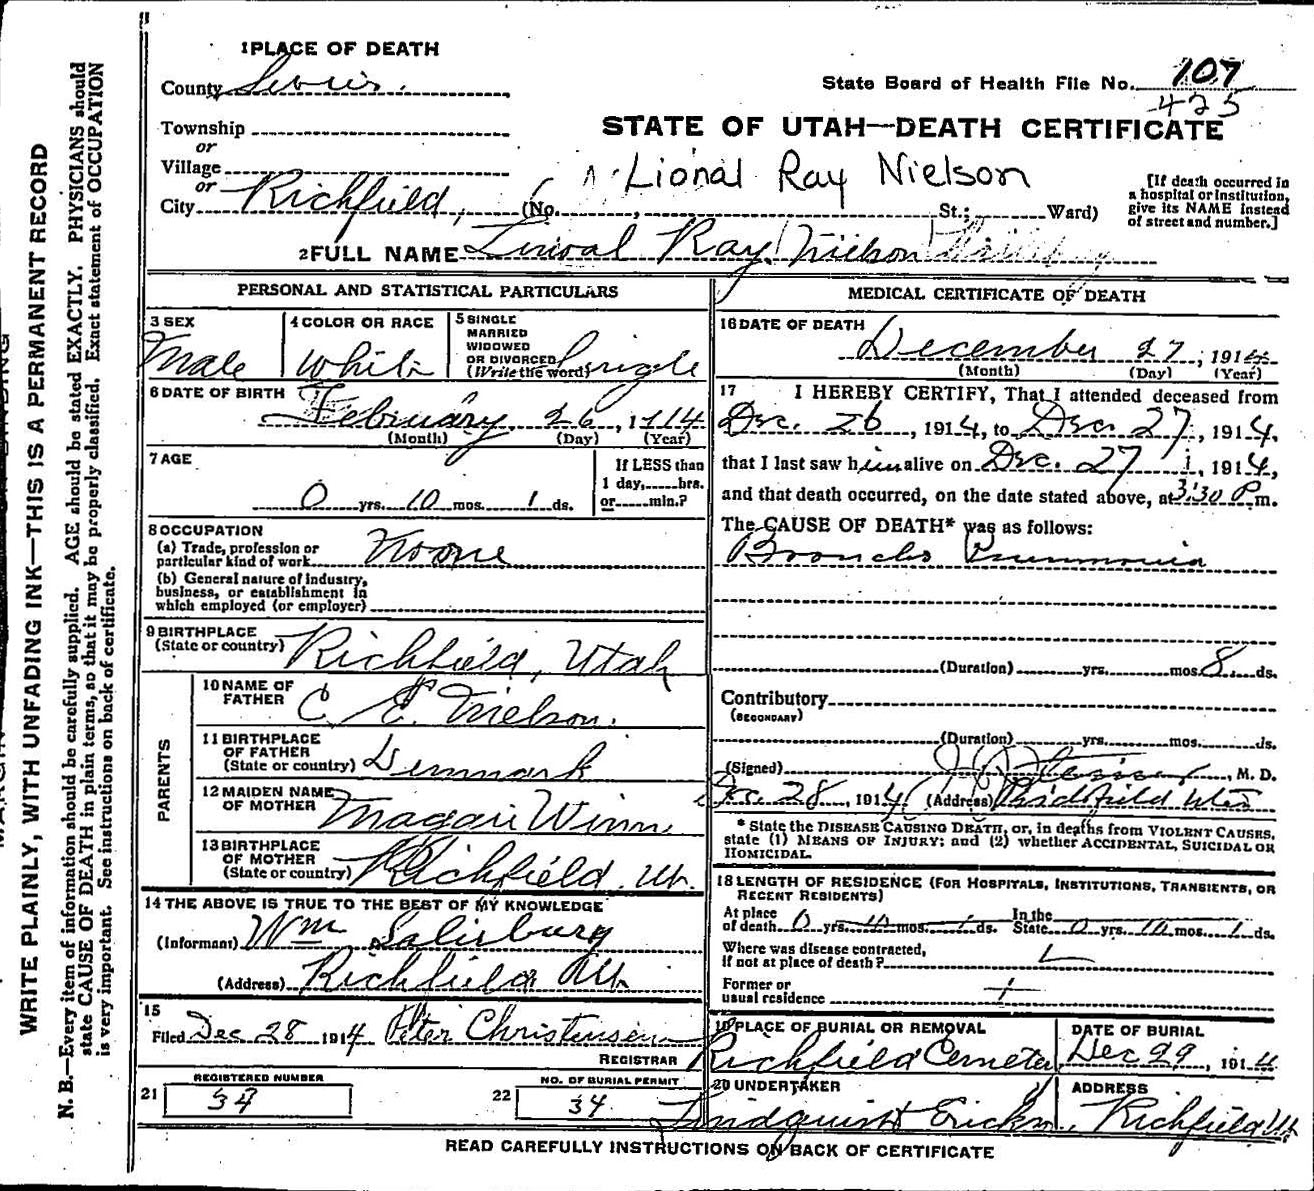 1 PLACE OF DEATH
County Sevier.
State Board of Health File No. 107
425
Township
or
STATE OF UTAH—DEATH CERTIFICATE
Village
or
Lional Ray Nielson
City Richfield, (No. , St.; Ward)
[If death occurred in
a hospital or institution,
give its NAME instead
of street and number.]
2 FULL NAME Linval Ray Nielson
PERSONAL AND STATISTICAL PARTICULARS
3 SEX
Male
4 COLOR OR RACE
White
5 SINGLE
MARRIED
WIDOWED
OR DIVORCED
(Write the word) Single
6 DATE OF BIRTH
February 26, 1914
(Month) (Day) (Year)
7 AGE
0 yrs. 10 mos. 1 ds.
If LESS than
1 day, hrs.
or min.?
8 OCCUPATION
(a) Trade, profession or
particular kind of work None
(b) General nature of industry,
business, or establishment in
which employed (or employer)
9 BIRTHPLACE
(State or country) Richfield, Utah
PARENTS
10 NAME OF
FATHER C. E. Nielson.
11 BIRTHPLACE
OF FATHER
(State or country) Denmark
12 MAIDEN NAME
OF MOTHER Maggie Winn
13 BIRTHPLACE
OF MOTHER
(State or country) Richfield Ut.
14 THE ABOVE IS TRUE TO THE BEST OF MY KNOWLEDGE
(Informant) Wm Salisbury
(Address) Richfield Ut.
15
Filed Dec 28 1914 Peter Christensen
REGISTRAR
REGISTERED NUMBER
21 34
NO. OF BURIAL PERMIT
22 34
MEDICAL CERTIFICATE OF DEATH
16 DATE OF DEATH
December 27, 1914
(Month) (Day) (Year)
17 I HEREBY CERTIFY, That I attended deceased from
Dec. 26, 1914, to Dec. 27, 1914.
that I last saw him alive on Dec. 27, 1914,
and that death occurred, on the date stated above, at 3:30 P.m.
The CAUSE OF DEATH* was as follows:
Broncho Pneumonia
(Duration) yrs. mos. 8 ds.
Contributory
(SECONDARY)
(Duration) yrs. mos. ds.
(Signed) , M. D.
Dec. 28, 1914 (Address) Richfield Utah
* State the DISEASE CAUSING DEATH, or, in deaths from VIOLENT CAUSES,
state (1) MEANS OF INJURY; and (2) whether ACCIDENTAL, SUICIDAL OR
HOMICIDAL.
18 LENGTH OF RESIDENCE (FOR HOSPITALS, INSTITUTIONS, TRANSIENTS, OR
RECENT RESIDENTS)
At place
of death 0 yrs. 10 mos. 1 ds. In the
State 0 yrs. 10 mos. 1 ds.
Where was disease contracted,
if not at place of death?
Former or
usual residence
19 PLACE OF BURIAL OR REMOVAL
Richfield Cemetery
DATE OF BURIAL
Dec 29, 1914
20 UNDERTAKER
Lindquist
ADDRESS
Richfield Ut
READ CAREFULLY INSTRUCTIONS ON BACK OF CERTIFICATE
WRITE PLAINLY, WITH UNFADING INK—THIS IS A PERMANENT RECORD
N. B.—Every item of information should be carefully supplied. AGE should be stated EXACTLY. PHYSICIANS should
state CAUSE OF DEATH in plain terms, so that it may be properly classified. Exact statement of OCCUPATION
is very important. See instructions on back of certificate.